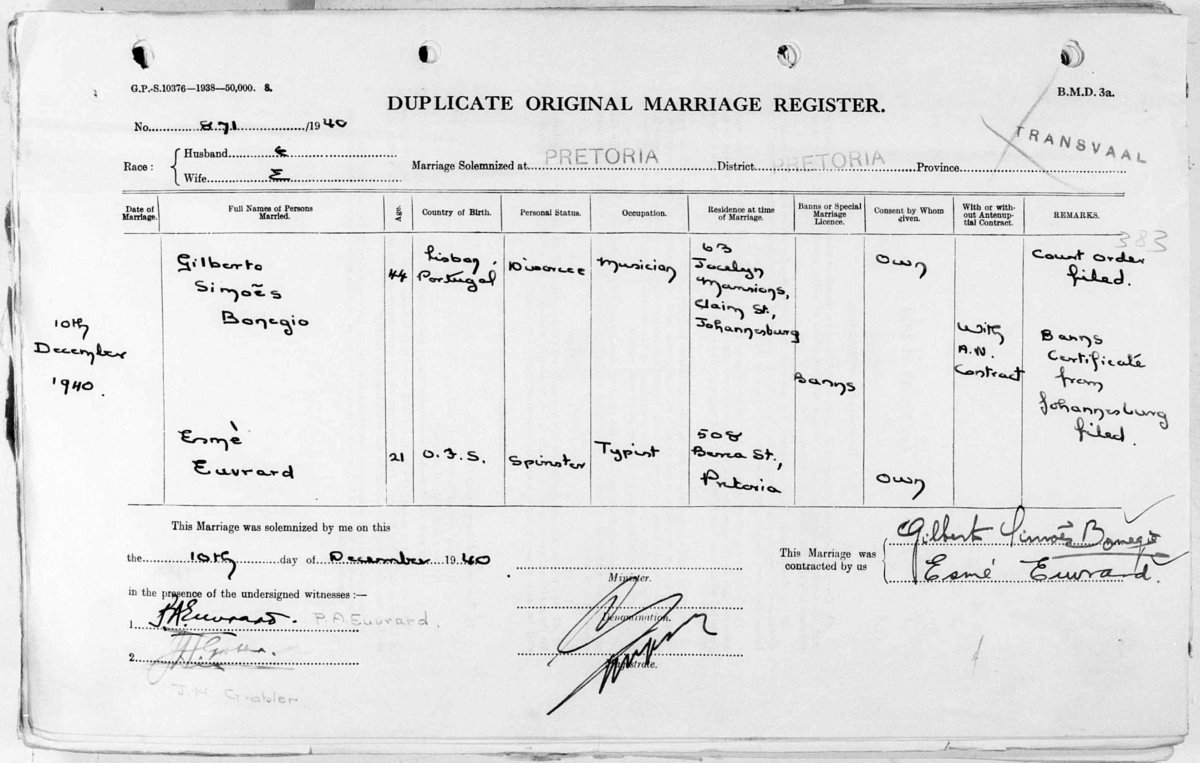 G.P.-S.10376—1938—50,000. S.
B.M.D. 3a.
DUPLICATE ORIGINAL MARRIAGE REGISTER.
No. 871 /1940
Race: Husband E
Wife E
Marriage Solemnized at PRETORIA District PRETORIA Province TRANSVAAL
Date of Marriage.
Full Names of Persons Married.
Age.
Country of Birth.
Personal Status.
Occupation.
Residence at time of Marriage.
Banns or Special Marriage Licence.
Consent by Whom given.
With or without Antenuptial Contract.
REMARKS.
383
10th
December
1940.
Gilberto
Simoẽs
Bonegio
44
Lisbon,
Portugal
Divorcee
Musician
63
Jocelyn
Mansions,
Claim St.,
Johannesburg
Banns
Own
With
A.N.
Contract
Court order
filed.
Banns
Certificate
from
Johannesburg
filed.
Esmè
Euvrard
21
O.F.S.
Spinster
Typist
508
Berea St.,
Pretoria
Own
This Marriage was solemnized by me on this
the 10th day of December 1940
in the presence of the undersigned witnesses :—
1. P.A. Euvrard. P.A. Euvrard.
2.
J.H. Grobler
Minister.
Denomination.
Magistrate.
This Marriage was
contracted by us
Gilberto Simoẽs Bonegio
Esmé Euvrard.